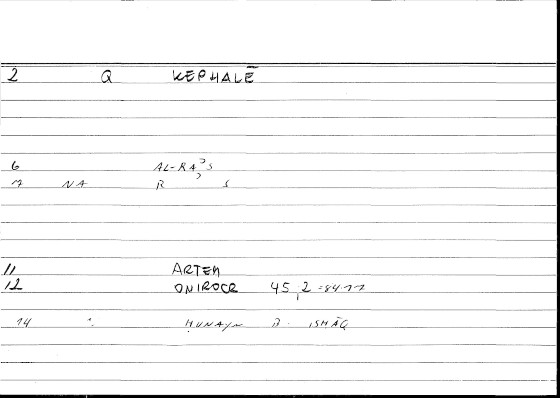 2 Q KEPHALĒ
6 AL-RAʾS
7 NA R ʾ S
11 ARTEM
12 ONIROCR 45,2 = 84.11
14 ḤUNAYN B. ISḤĀQ